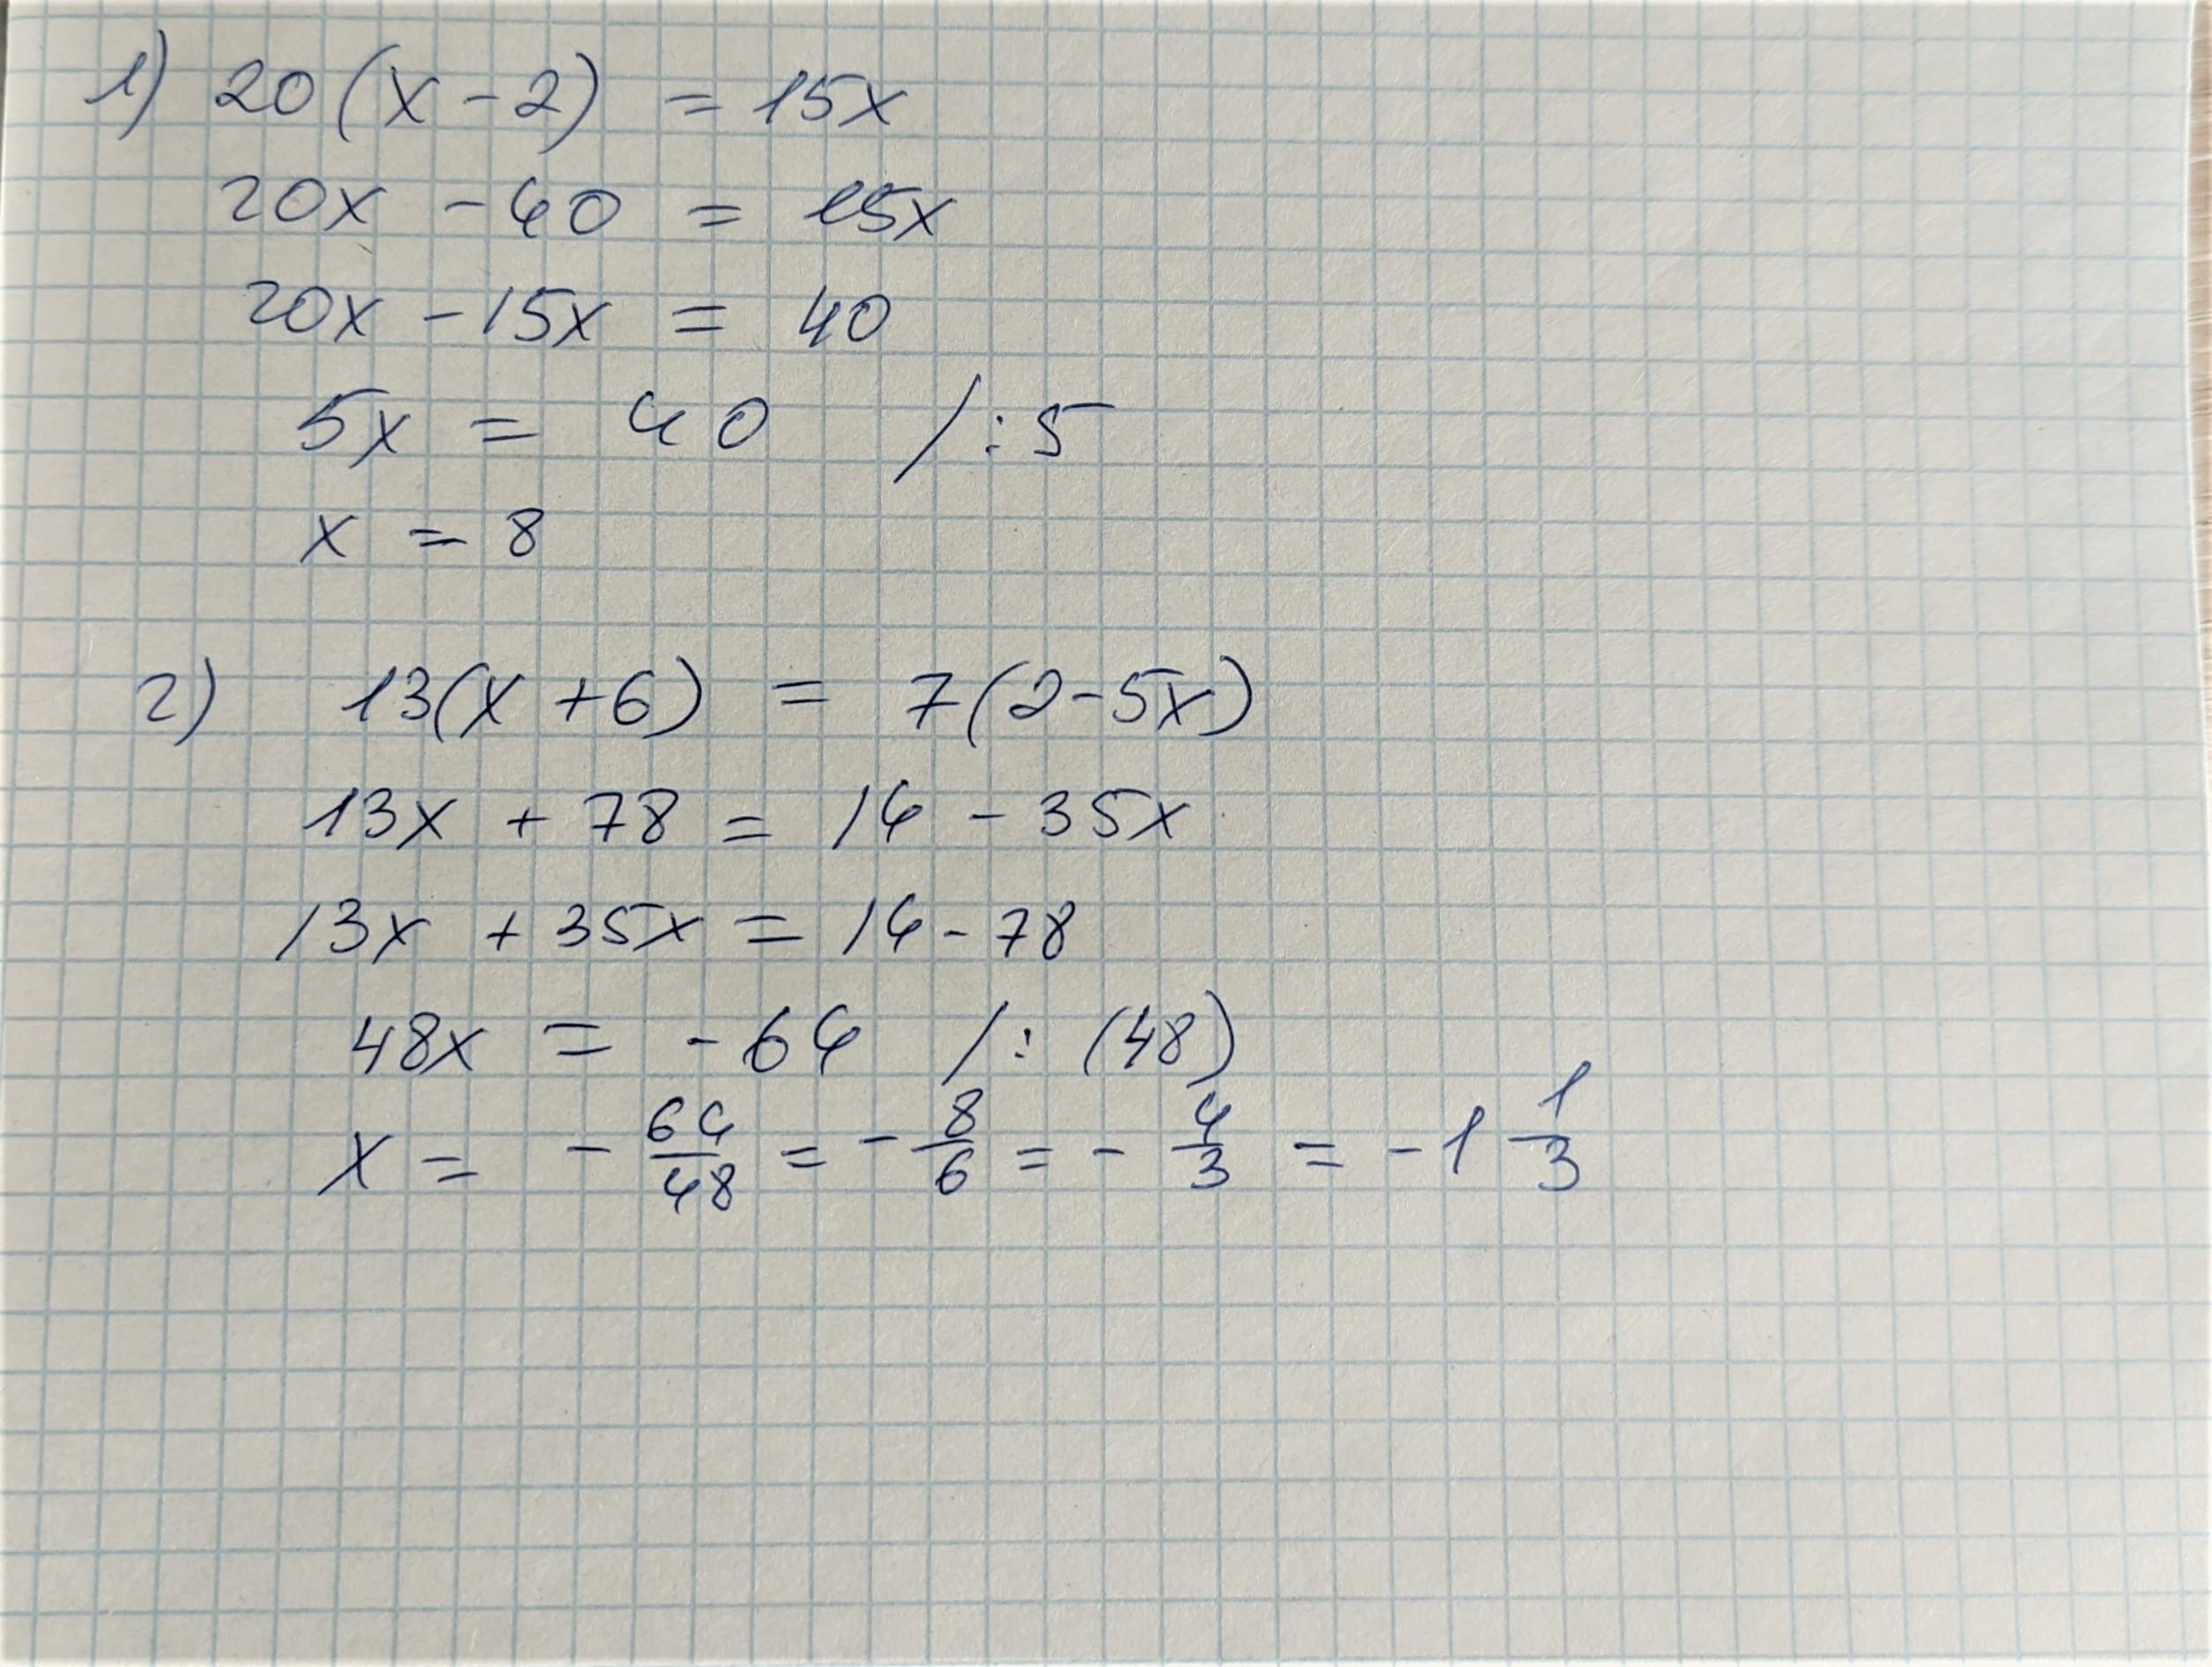 1) 20(x-2) = 15x
20x - 40 = 15x
20x - 15x = 40
5x = 40 /:5
x = 8
2) 13(x+6) = 7(2-5x)
13x + 78 = 14 - 35x
13x + 35x = 14 - 78
48x = -64 /: (48)
x = - 64/48 = - 8/6 = - 4/3 = -1 1/3